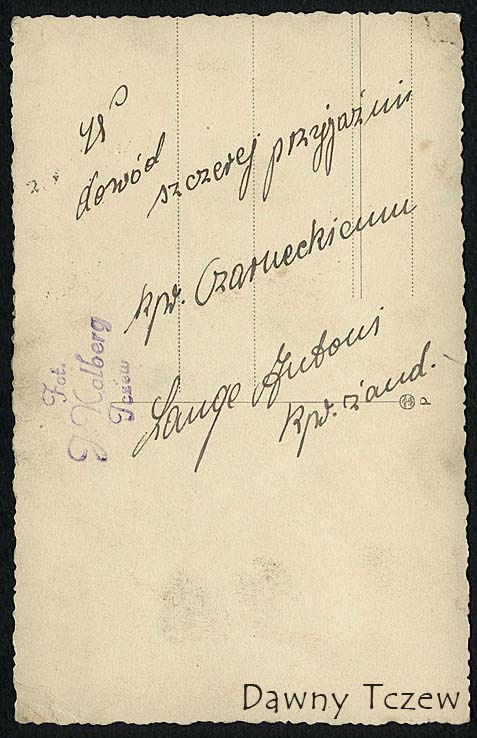 dowód
szczerej przyjaźni
kpr. Czarneckiemu
Lange Antoni
kpr. żand.
Fot.
J. Kolberg
Tczew
Dawny Tczew